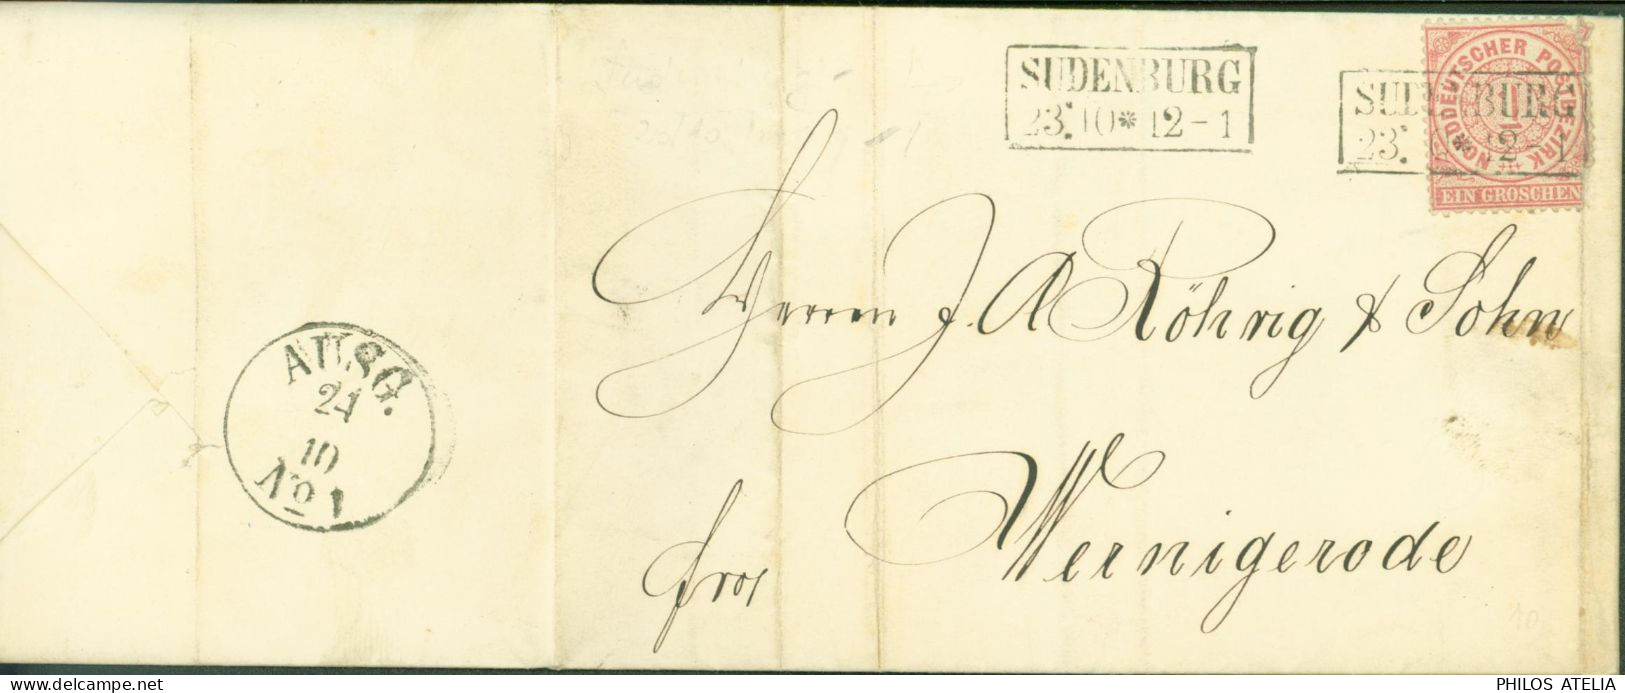 SUDENBURG
23. 10 * 12-1
SUDENBURG
23. 12-1
NORDDEUTSCHER POSTBEZIRK
1
EIN GROSCHEN
Herren J. A Röhrig & Sohn
Wernigerode
AUSG.
24
10
No 1
10
PHILOS ATELIA